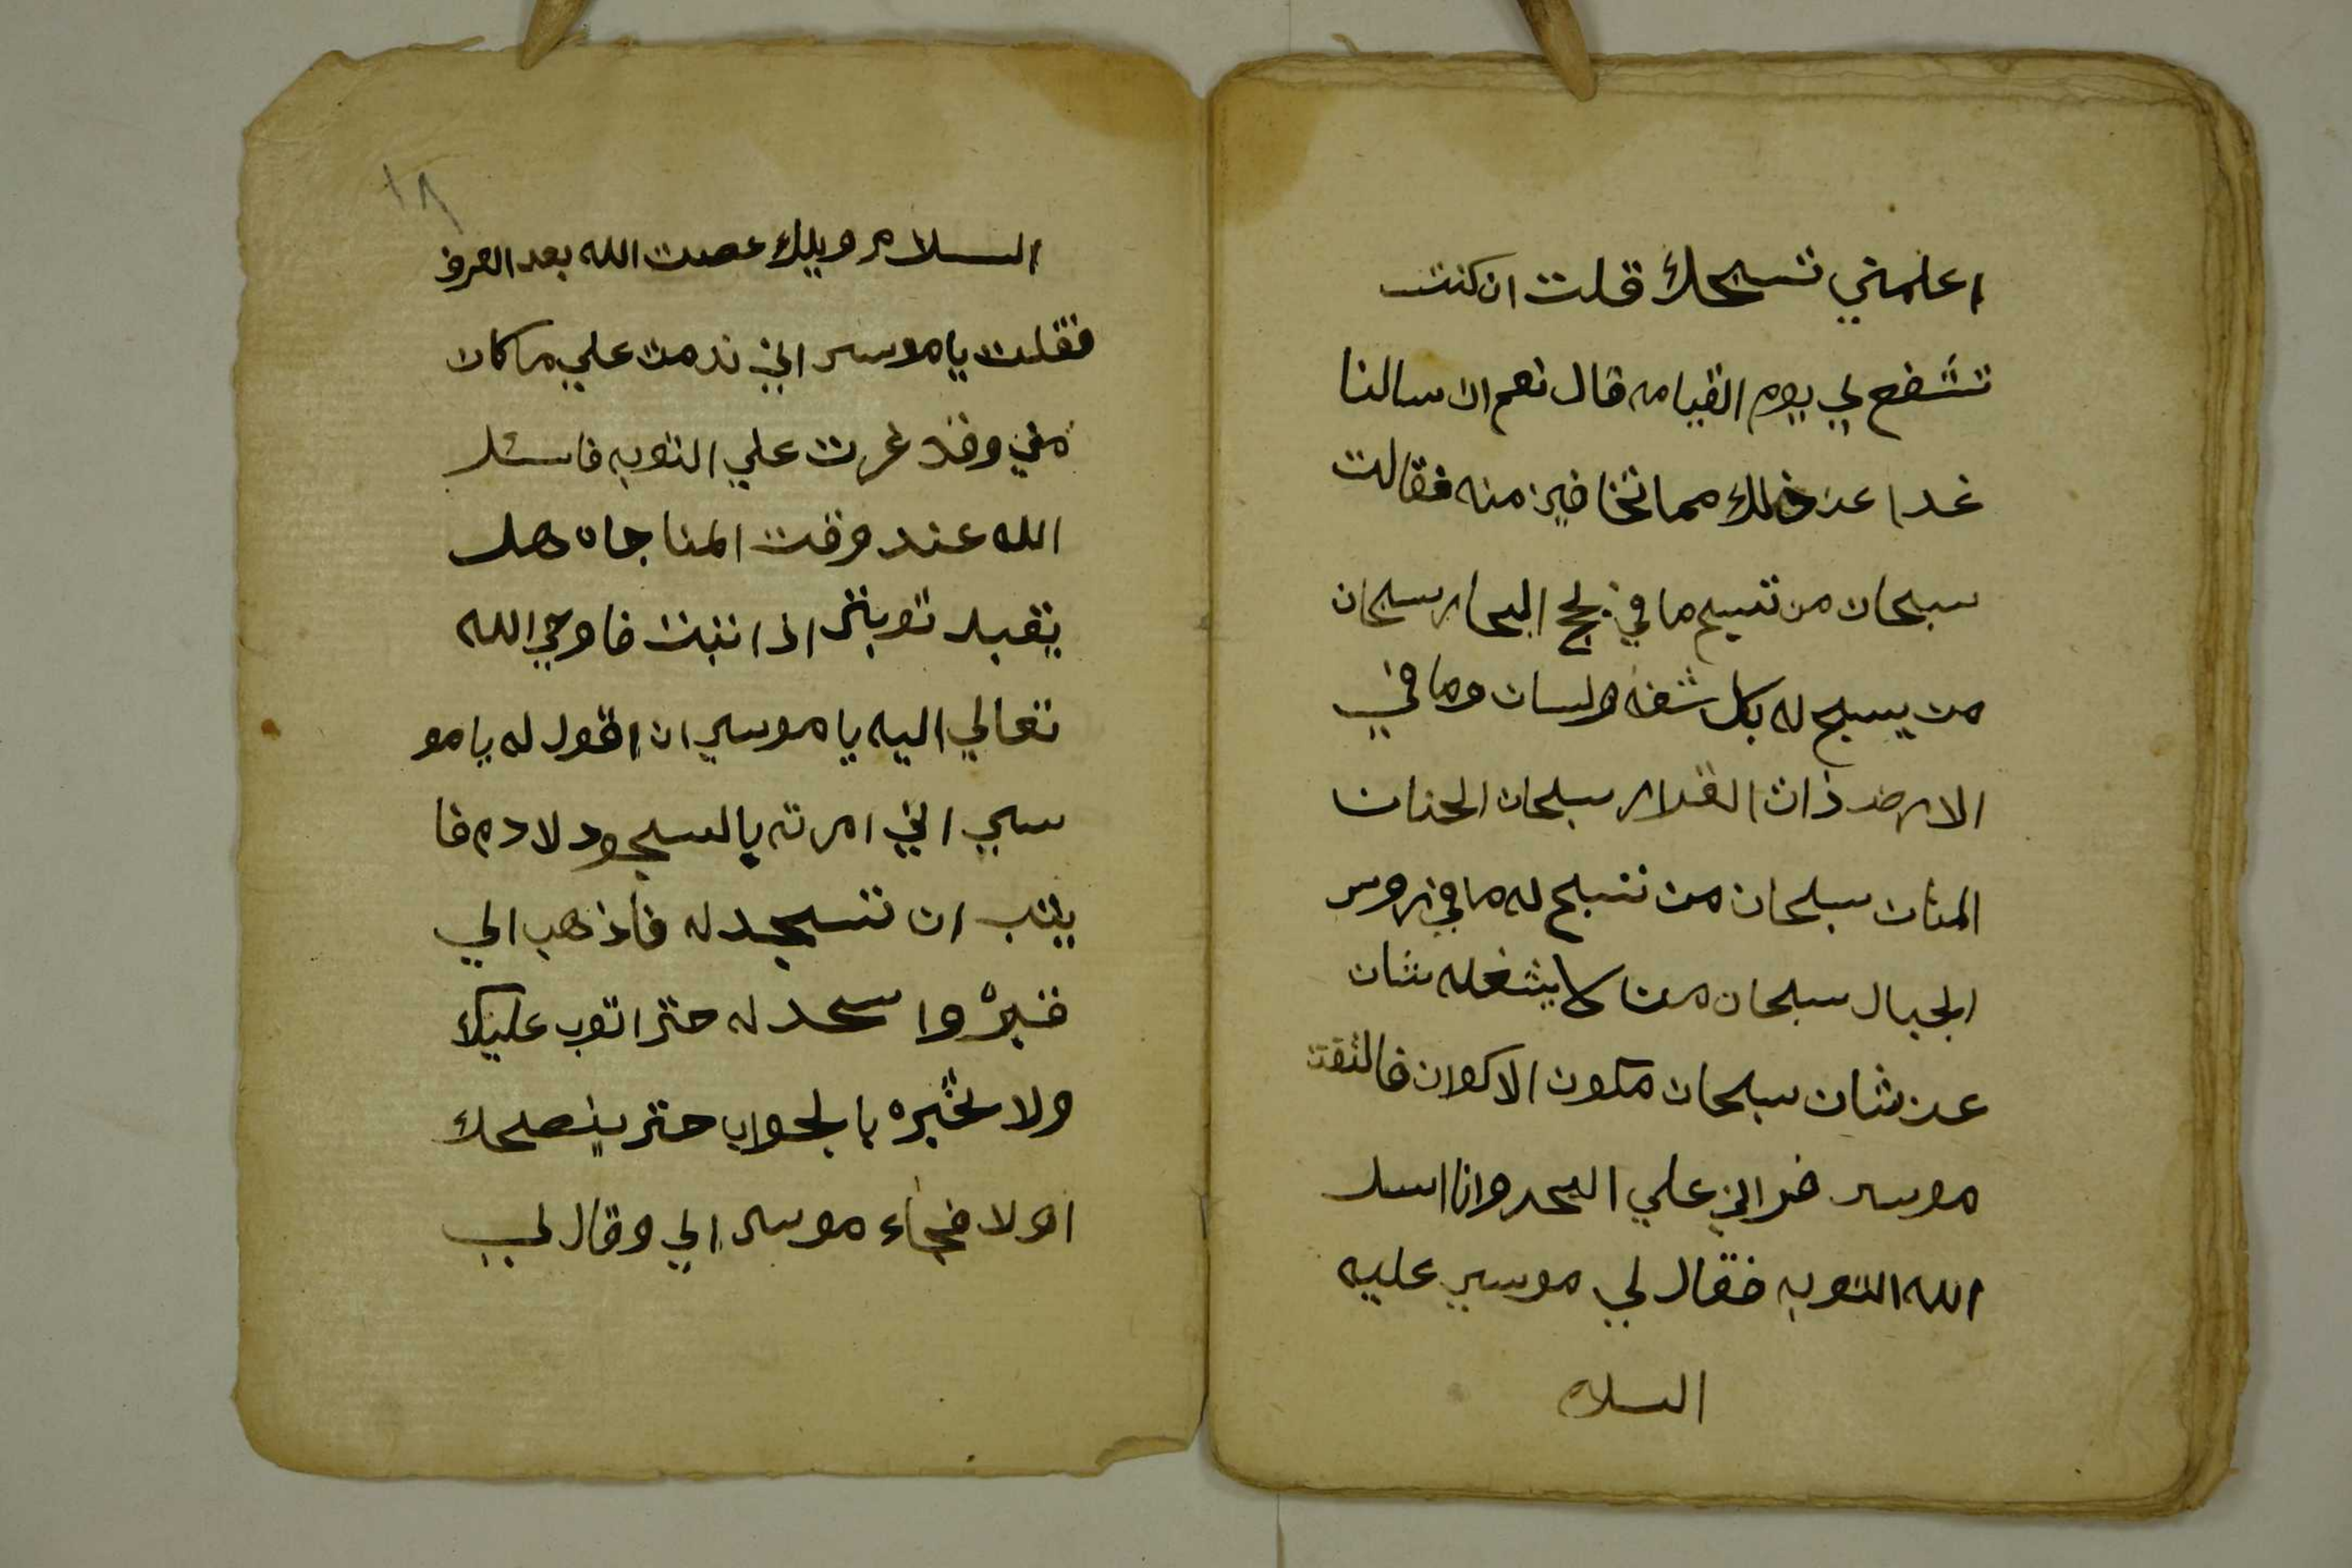 اعلمني تسبيحك قلت ان كنت
تشفع لي يوم القيامه قال نعم ان سالنا
غدا عن ذلك مما تخافين منه فقالت
سبحان من تسبح ما في لجج البحار سبحان
من يسبح له بكل شفه ولسان وما في
الارض ذات القرار سبحان الحنان
المنان سبحان من تسبح له ما في روس
الجبال سبحان من لا يشغله شان
عن شان سبحان مكون الاكوان فالتفت
موسي فراني علي البحر وانا اسل
الله التوبه فقال لي موسي عليه
السلام
١٨
السلام ويلك عصت الله بعد العرف
فقلت يا موسي اني ندمت علي ما كان
مني وقد غرت علي التوبه فاسئل
الله عند وقت المناجاه هل
يقبل توبتي اذا تبت فاوحي الله
تعالي اليه يا موسي ان اقول له يا مو
سي اني امرته بالسجود لادم فا
يتب ان تسجد له فاذهب الي
قبره واسجد له حتي اتوب عليك
ولا تخبره بالجواب حتي ينصحك
اولا فجاء موسي الي وقال لي